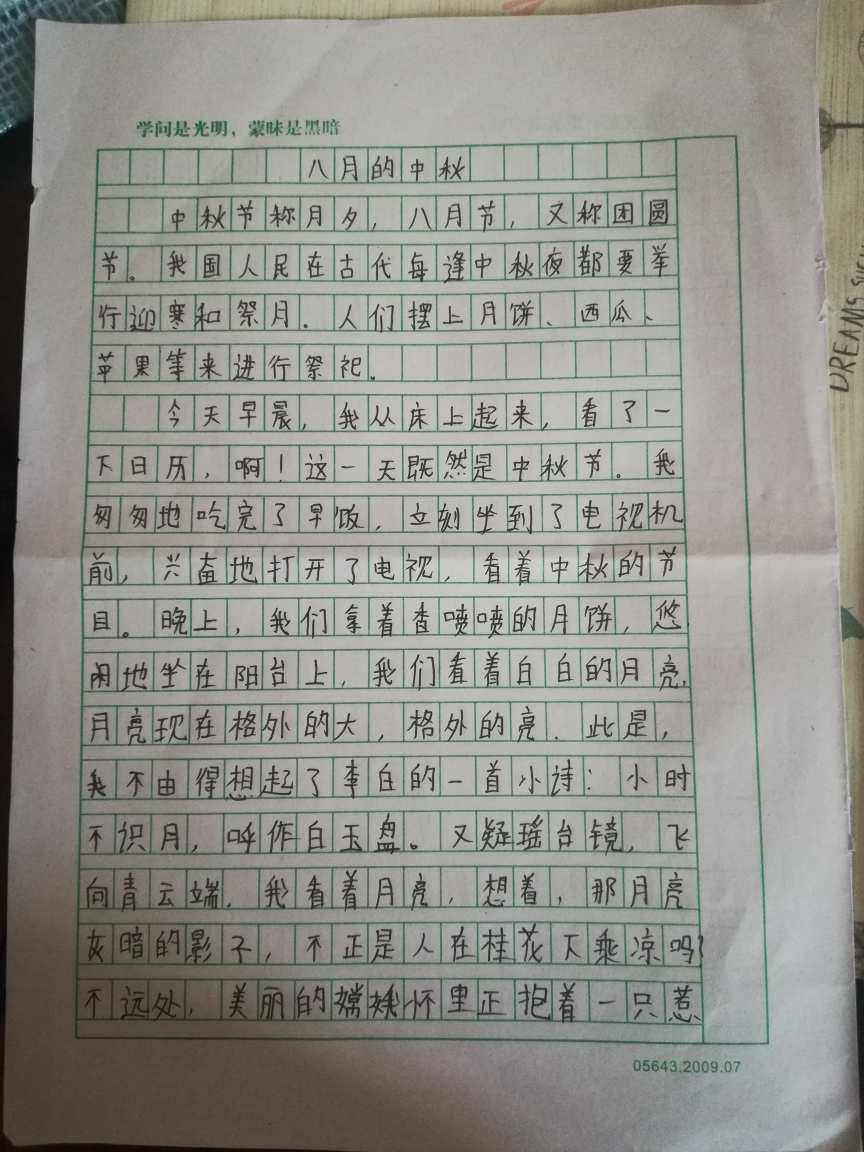 学问是光明，蒙昧是黑暗
八月的中秋
中秋节称月夕，八月节，又称团圆
节。我国人民在古代每逢中秋夜都要举
行迎寒和祭月．人们摆上月饼、西瓜、
苹果等来进行祭祀．
今天早晨，我从床上起来，看了一
下日历，啊！这一天既然是中秋节．我
匆匆地吃完了早饭，立刻坐到了电视机
前，兴奋地打开了电视，看着中秋的节
目。晚上，我们拿着香喷喷的月饼，悠
闲地坐在阳台上，我们看着白白的月亮，
月亮现在格外的大，格外的亮．此是，
我不由得想起了李白的一首小诗：小时
不识月，呼作白玉盘。又疑瑶台镜，飞
向青云端．我看着月亮，想着，那月亮
灰暗的影子，不正是人在桂花下乘凉吗？
不远处，美丽的嫦娥怀里正抱着一只惹
05643.2009.07
DREAMS